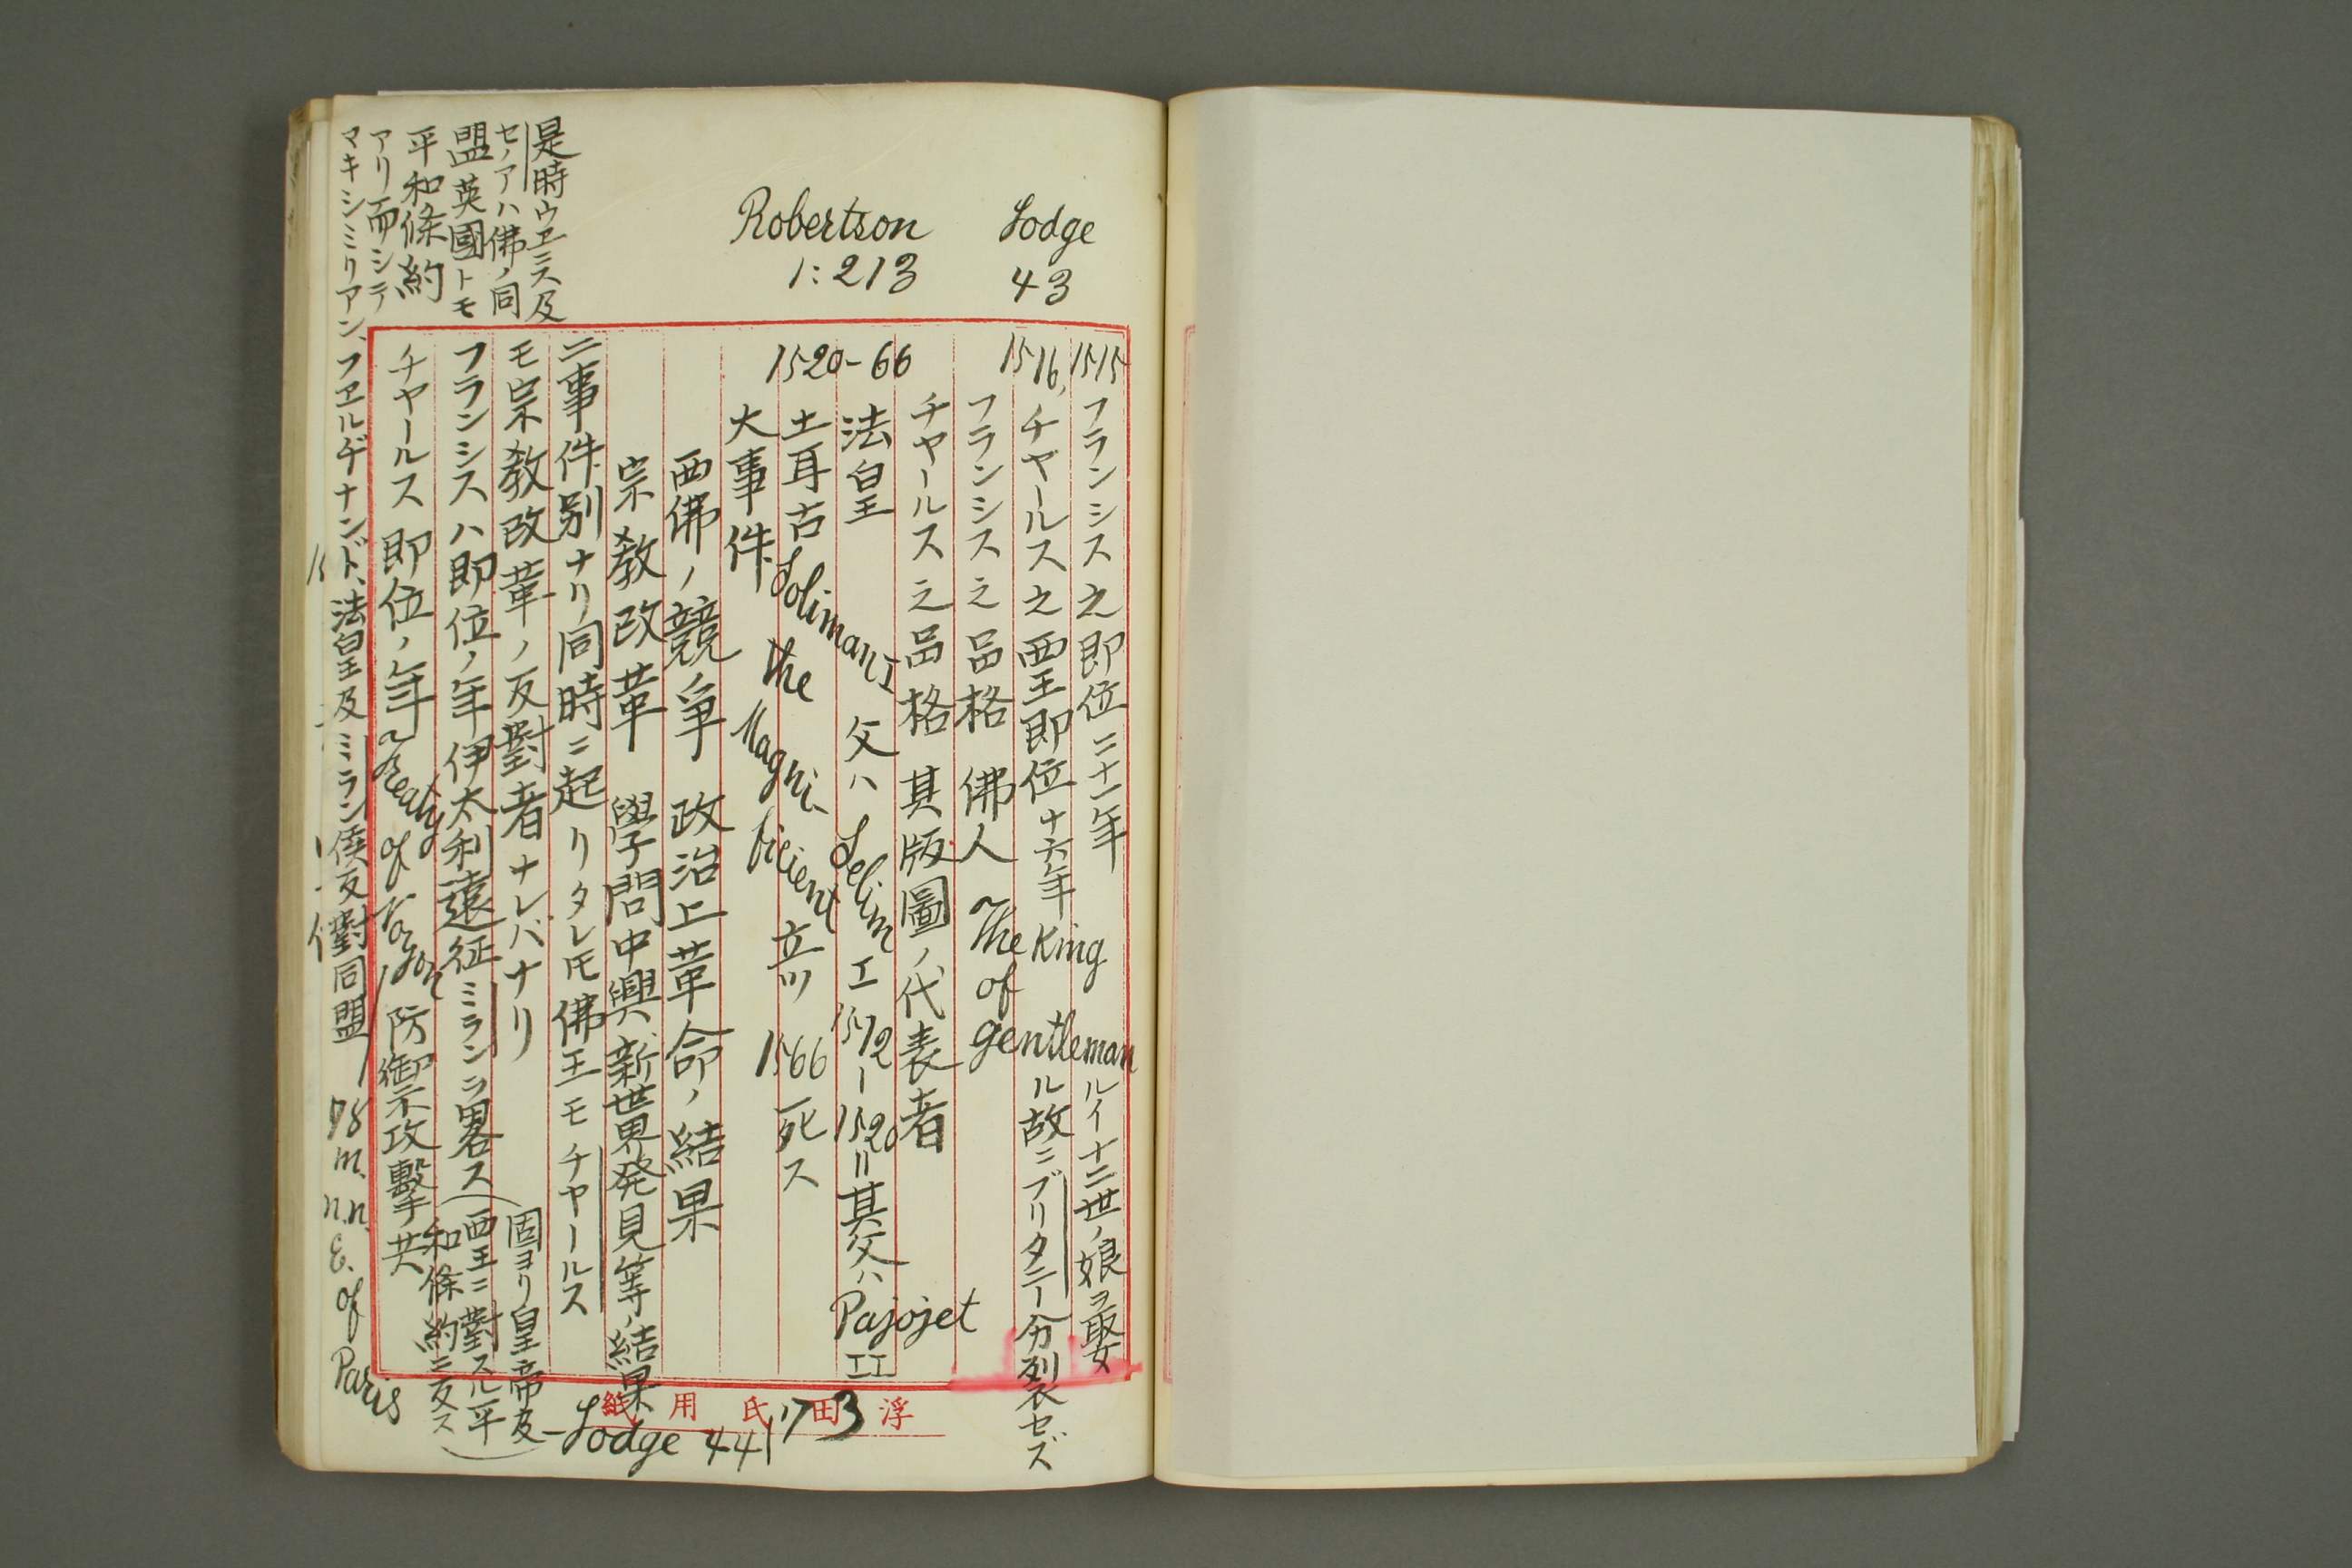 Lodge
43
Robertson
1:213
1515 フランシス之即位二十一年 ルイ十二世ノ娘ヲ娶
1516, チャールス之西王即位十六年 ル故ニブリタニー分裂セズ
フランシス之品格 佛人 The King of gentleman
チャールス之品格 其版圖ノ代表者
法皇 父ハ Selim I 1512-1520=其父ハ Pajojet II
1520-66
土耳古 Soliman I the Magni-ficient 立ツ 1566 死ス
大事件
西佛ノ競争 政治上革命ノ結果
宗教改革 學問中興、新世界発見等ノ結果
二事件別ナリ同時ニ起リタレ𪜈佛王モチャールス
モ宗教改革ノ反對者ナレバナリ
フランシスハ即位ノ年伊太利遠征ミランヲ畧ス
(固ヨリ皇帝及
西王ニ對スル平
和條約ニ反ス)
チャールス即位ノ年 a Treaty of Noyon 防禦攻撃共
マキシミリアン、フェルヂナンド、法皇及ミラン侯反對同盟
78 m. n.n.E. of Paris
是時ウェニス及
セノアハ佛ノ同
盟英國トモ
平和條約
アリ而シテ
浮田氏用紙
Lodge 44
173